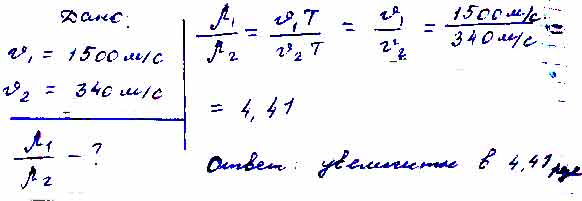 Дано:
v₁ = 1500 м/с
v₂ = 340 м/с
λ₁/λ₂ - ?
λ₁/λ₂ = v₁T/v₂T = v₁/v₂ = 1500 м/с / 340 м/с =
= 4,41
Ответ: увеличится в 4,41 раза